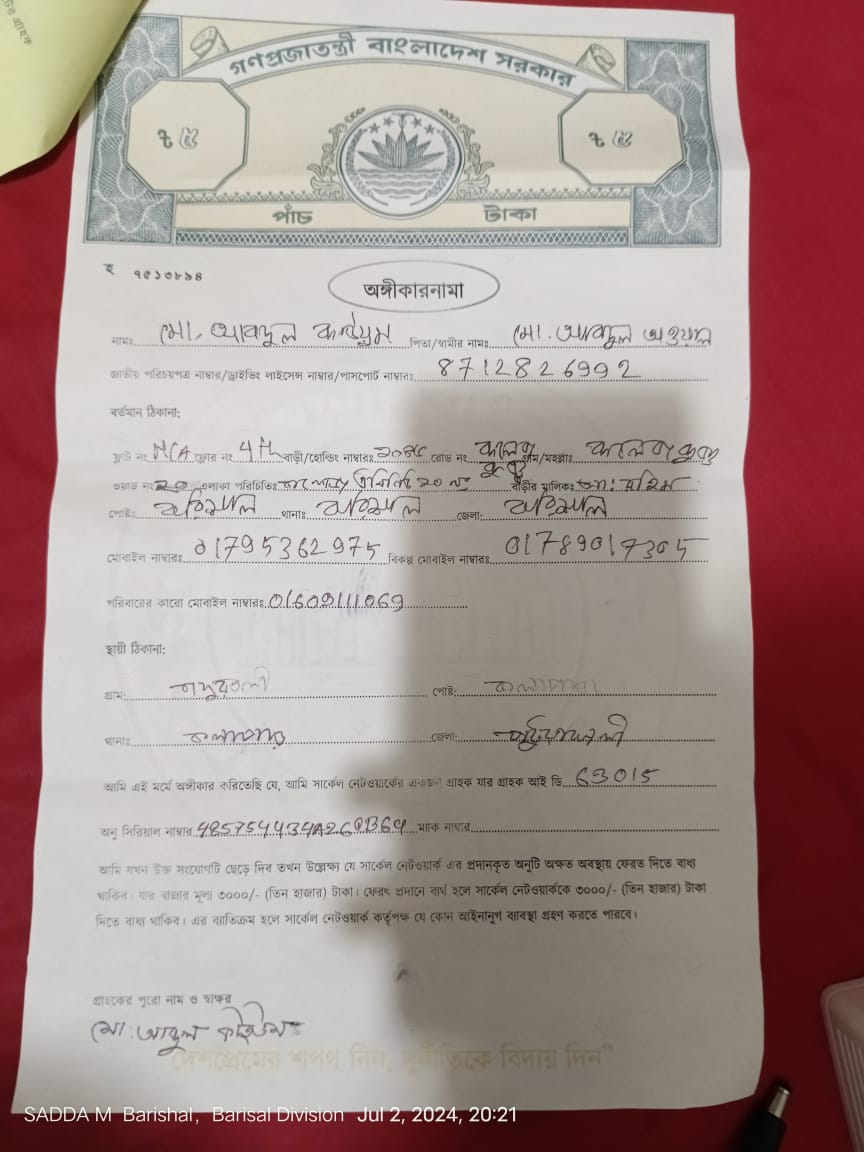 টের গ্রাহক
গণপ্রজাতন্ত্রী বাংলাদেশ সরকার
৳ ৫ ৳ ৫
পাঁচ টাকা
অঙ্গীকারনামা
নামঃ মো. আবদুল কাইয়ুম পিতা/স্বামীর নামঃ মো. আবদুল
জাতীয় পরিচয়পত্র নাম্বার/ড্রাইভিং লাইসেন্স নাম্বার/পাসপোর্ট নাম্বারঃ 8712826992
বর্তমান ঠিকানা:
ফ্লাট নং ফ্লোর নং 4th বাড়ী/হোল্ডিং নাম্বারঃ রোড নং কলেজ গ্রাম/মহল্লাঃ কলেজ
ওয়ার্ড নং ২০ এলাকা পরিচিতিঃ ২০ নং বাড়ীর মালিকঃ
পোষ্টঃ বরিশাল থানাঃ বরিশাল জেলা: বরিশাল
মোবাইল নাম্বারঃ 01795362975 বিকল্প মোবাইল নাম্বারঃ 01789017305
পরিবারের কারো মোবাইল নাম্বারঃ 01609111069
স্থায়ী ঠিকানা:
গ্রাম: পোষ্ট: কলাপাড়া
থানাঃ কলাপাড়া জেলা: পটুয়াখালী
আমি এই মর্মে অঙ্গীকার করিতেছি যে, আমি সার্কেল নেটওয়ার্কের একজন গ্রাহক যার গ্রাহক আই ডি 63015
অনু সিরিয়াল নাম্বার ম্যাক নাম্বার
আমি যখন উক্ত সংযোগটি ছেড়ে দিব তখন উল্লেক্ষা যে সার্কেল নেটওয়ার্ক এর প্রদানকৃত অনুটি অক্ষত অবস্থায় ফেরত দিতে বাধ্য
থাকিব। যার বাজার মূল্য ৩০০০/- (তিন হাজার) টাকা। ফেরৎ প্রদানে ব্যর্থ হলে সার্কেল নেটওয়ার্ককে ৩০০০/- (তিন হাজার) টাকা
দিতে বাধ্য থাকিব। এর ব্যাতিক্রম হলে সার্কেল নেটওয়ার্ক কর্তৃপক্ষ যে কোন আইনানুগ ব্যাবস্থা গ্রহণ করতে পারবে।
গ্রাহকের পুরো নাম ও স্বাক্ষর
মো: আব্দুল কাইউম
দেশপ্রেমের শপথ নিন, দুর্নীতিকে বিদায় দিন"
SADDA M Barishal, Barisal Division Jul 2, 2024, 20:21